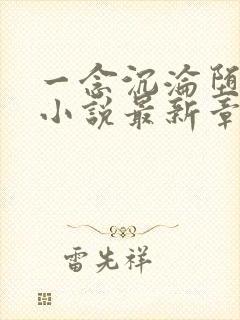 一念沉沦堕
小说最新章
雷先祥